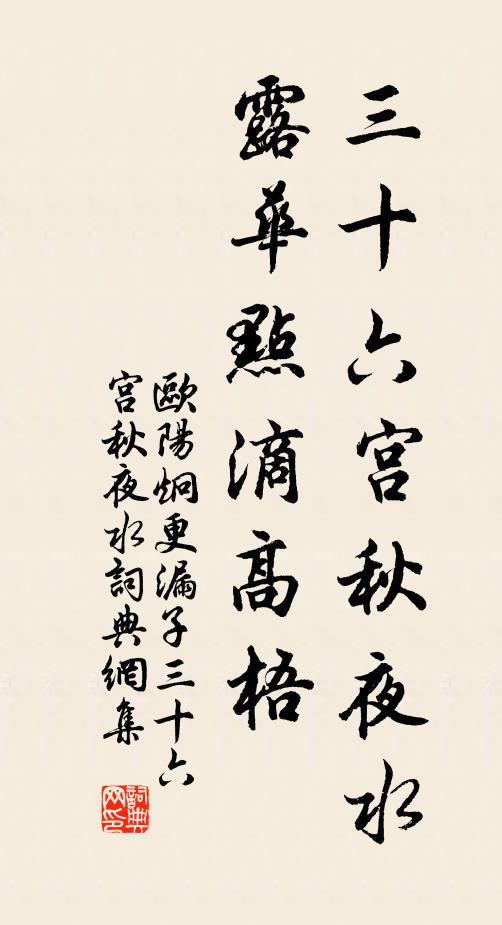 三十六宫秋夜水
露華點滴高梧
歐陽炯更漏子三十六
宫秋夜水詞典網集
詞典网印